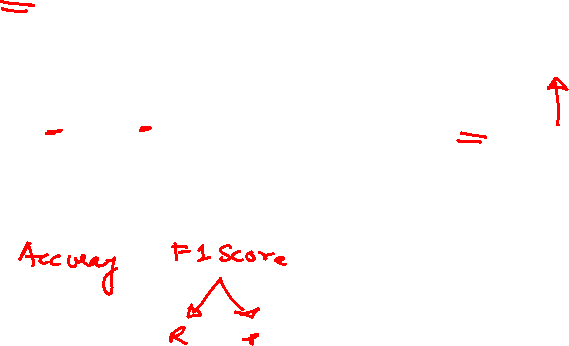 Accuracy F1 Score
R